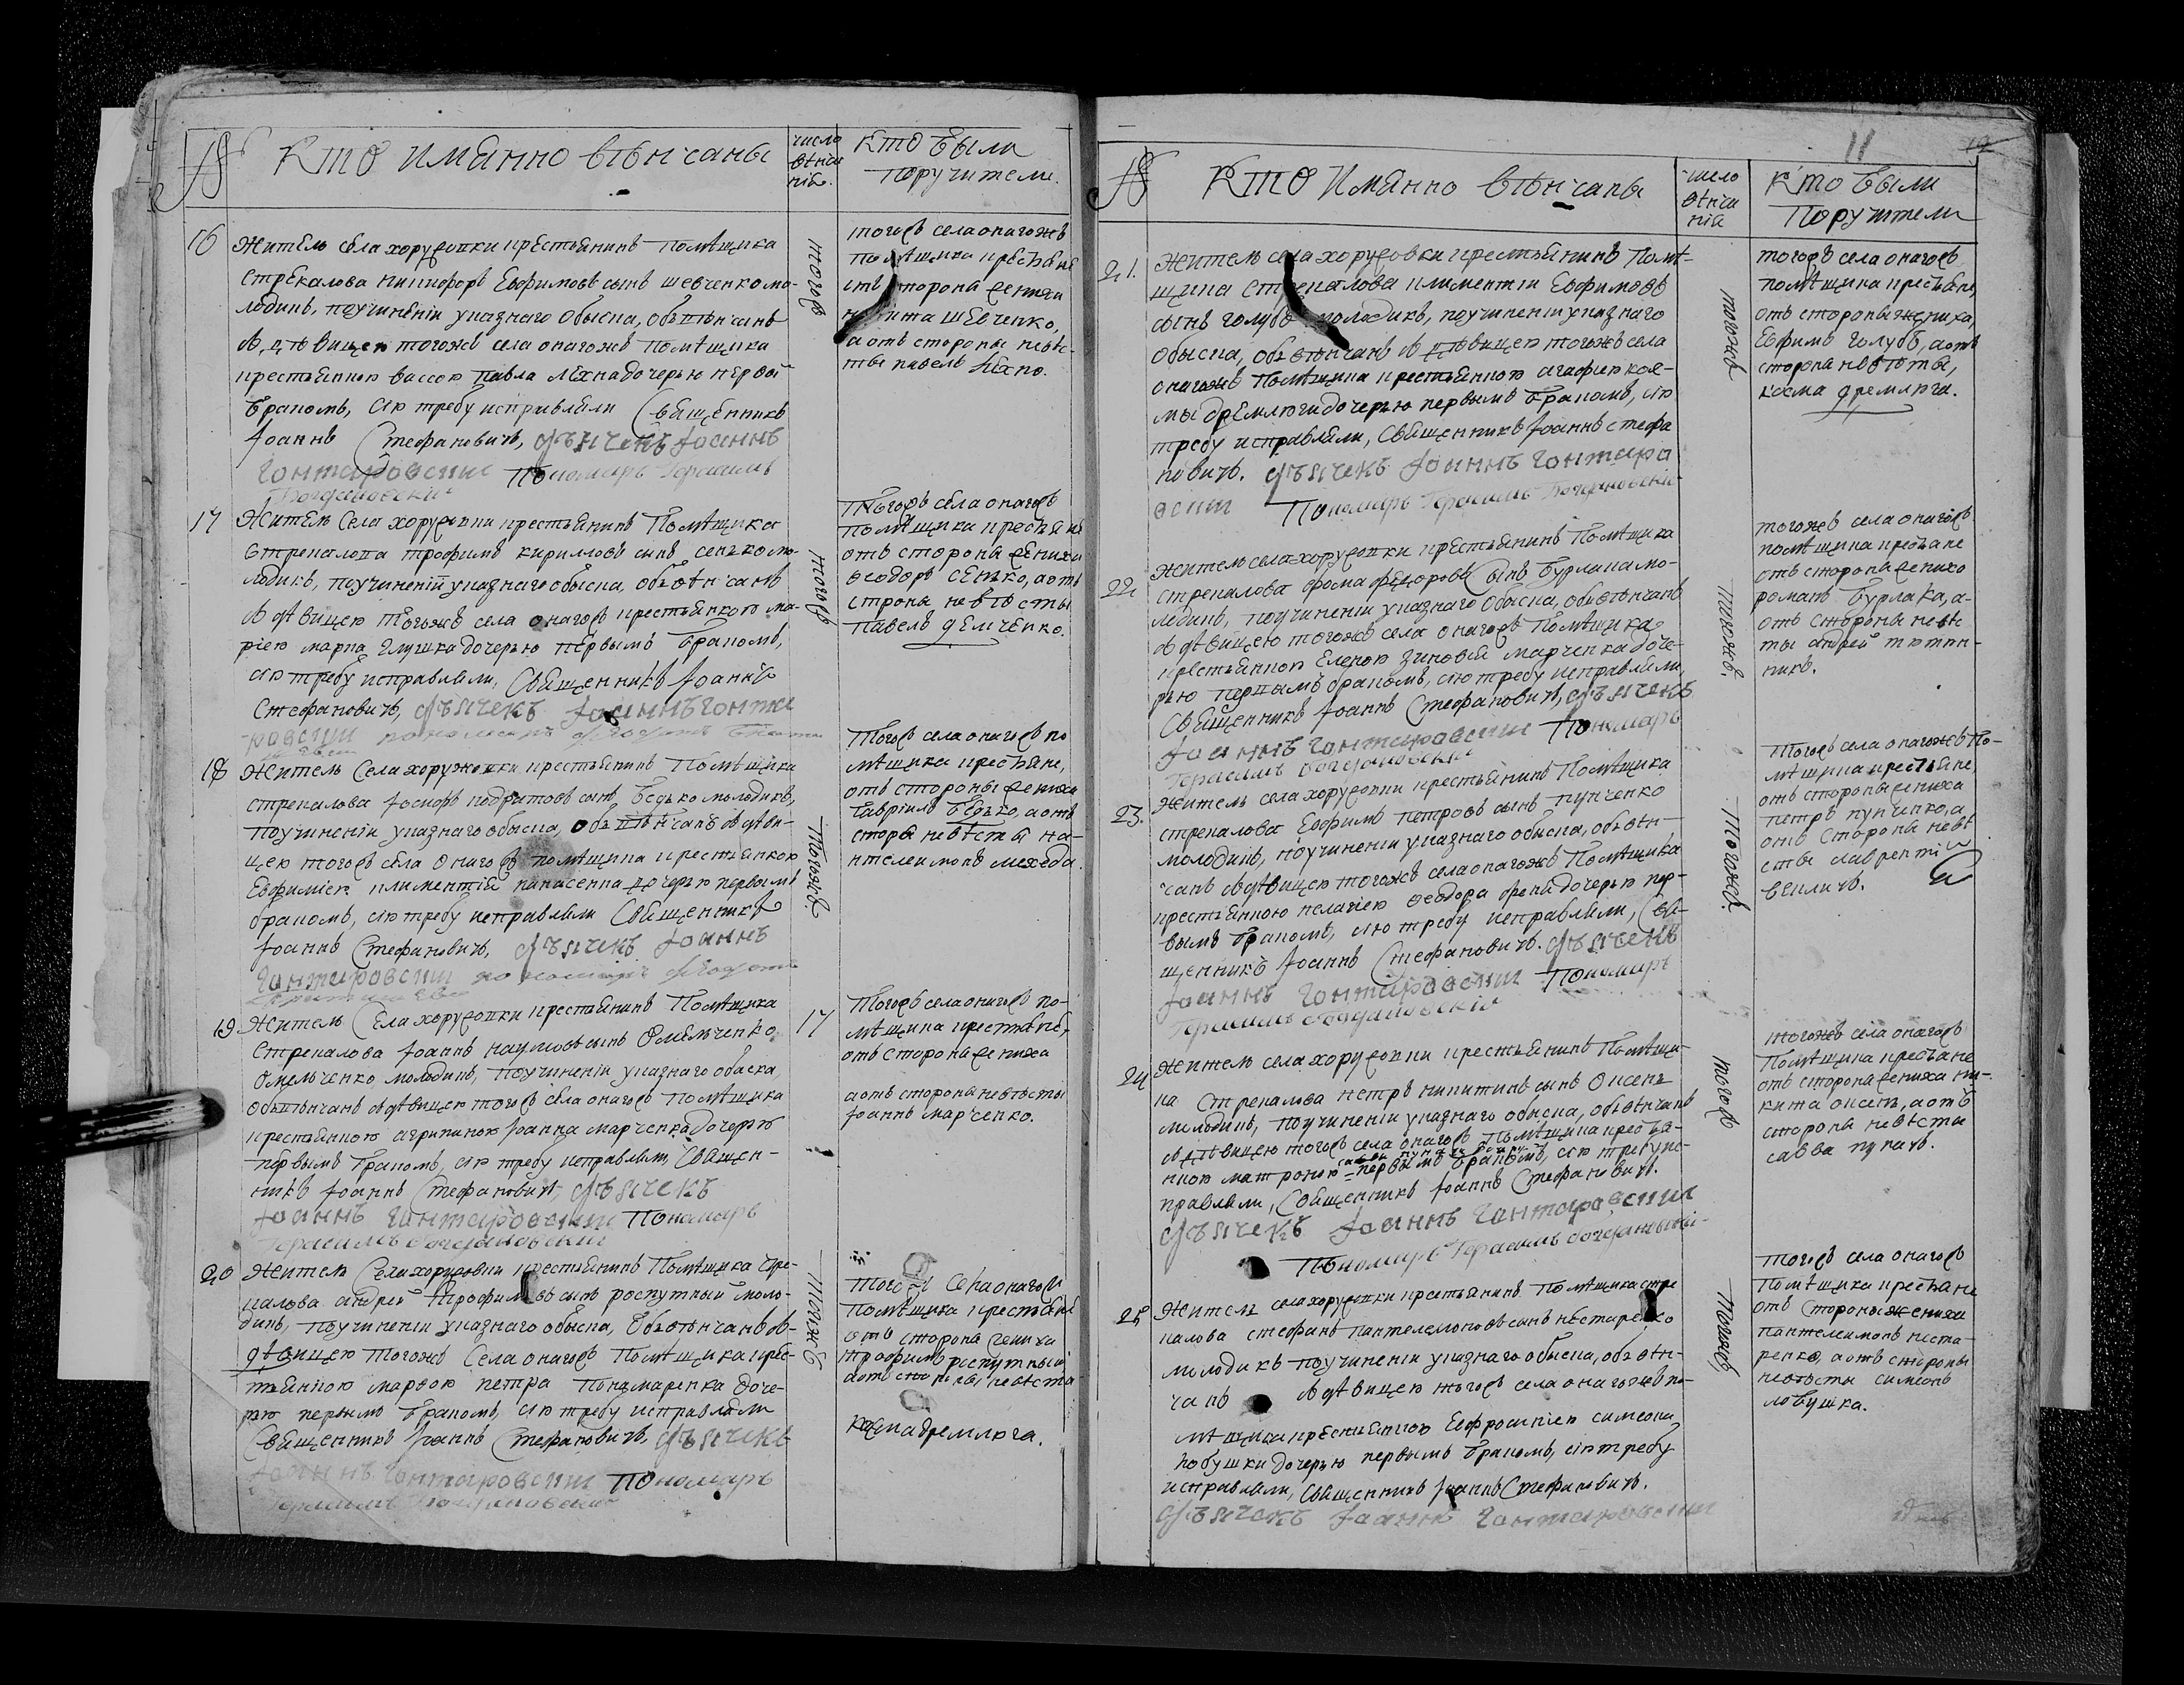 №
Кто имянно вѣнчаны
число вѣнчаній.
Кто были поручители.
16
Житель села хоружовки крестьянинъ помѣщика
Стрекалова никифоръ Евфимовъ сынъ шевченко мо-
лодикъ, поучиненіи указнаго обыска, обвѣнчанъ
з дѣвицею тогожъ села онагожъ помѣщика
крестьянкою вассою павла Лѣхна дочерью первой
бракомъ, сію требу исправляли Священникъ
Іоаннъ Стефановичъ, дьячекъ Іоаннъ
Гонтаровскии Пономарь Герасимъ
Богдановскій
тогожъ
тогожъ села онагожъ
помѣщика крестьяне
отъ стороны жениха
никита шевченко,
а отъ стороны невѣс-
ты павелъ лѣхно.
17
Житель Села хоружовки крестьянинъ Помѣщика
Стрекалова трофимъ кирилловъ сынъ сенько мо-
лодикъ, поучиненій указнаго обыска, обвѣнчанъ
з дѣвицею тогожъ села онагожъ крестьянкою ма-
ріею марка глушка дочерью первымъ бракомъ,
сію требу исправляли, Священникъ Іоаннъ
Стефановичъ, дьячекъ Іоаннъ Гонта
ровскии пономарь
тогожъ
Тогожъ села онагожъ
помѣщика крестьяне
отъ стороны жениха
ѳеодоръ сенько, а отъ
строны невѣсты
павелъ демченко.
18
Житель Села хоружовки крестьянинъ Помѣщика
стрекалова Іосифъ кодратовъ сынъ Бедько молодикъ,
поучиненіи указнаго обыска, обвѣнчанъ з дѣви-
цею тогожъ села онагожъ помѣщика крестьянкою
Евфиміею климентія панасенка дочерью первымъ
бракомъ, сію требу исправляли Священникъ
Іоаннъ Стефановичъ, дьячекъ Іоаннъ
Гонтаровскии пономарь
тогожъ
Тогожъ села онагожъ по
мѣщика крестьяне,
отъ стороны жениха
Гавріилъ Бедько, а отъ
сторы невѣсты па-
нтелеимонъ мехеда
19.
Житель Села хоружовки крестьянинъ Помѣщика
Стрекалова Іоаннъ наумовъ сынъ Омельченко
Омельченко молодикъ, поучиненіи указнаго обыска,
обвѣнчанъ з дѣвицею тогожъ села онагожъ помѣщика
крестьянкою агрипиною Іоанна марченка дочерью
первымъ бракомъ, сію требу исправляли, Священ-
никъ Іоаннъ Стефановичъ, дьячекъ
Іоаннъ Гонтаровскии Пономарь
Герасимъ Богдановскии
17
Тогожъ села онагожъ по-
мѣщика крестьяне,
отъ стороны жениха
а отъ стороны невѣсты
Іоаннъ марченко.
20
Житель Села хоружовки крестьянинъ Помѣщика Стре-
калова андрей Трофимовъ сынъ роспутный моло-
дикъ, поучиненіи указнаго обыска, обвѣнчанъ з-
дѣвицею тогожъ Села онагожъ Помѣщика крес-
тьянкою марѳою петра пономаренка доче-
рью первымъ бракомъ, сію требу исправляли
Священникъ Іоаннъ Стефановичъ, дьячекъ
Іоаннъ Гонтаровскии Пономарь
Герасимъ Богдановскій
тогожъ
тогожъ Села онагожъ
Помѣщика крестьяне
отъ стороны жениха
трофимъ роспутный
а отъ стороны невѣсты
косма дремлюга.
11
12
№
Кто имянно вѣнчаны
число вѣнчаній
Кто были Поручители
21.
Житель села хоружовки крестьянинъ Помѣ-
щика Стрекалова климентій Евфимовъ
сынъ голубъ молодикъ, поучиненіи указнаго
обыска, обвѣнчанъ з дѣвицею тогожъ села
онагожъ Помѣщика крестьянкою агафиею кос-
мы дремлюги дочерью первымъ бракомъ, сію
требу исправляли, Священникъ Іоаннъ стефа
новичъ. дьячекъ Іоаннъ Гонтаро
вскии Пономарь Герасимъ Богдановскій
тогожъ
тогожъ села онагожъ
помѣщика крестьяне,
отъ стороны жениха,
Евфимъ голубъ, а отъ
стороны невѣсты,
косма дремлюга.
22
Житель села хоружовки крестьянинъ Помѣщика
стрекалова фома федоровъ сынъ Бурлака мо-
лодикъ, поучиненіи указнаго обыска, обвѣнчанъ
з дѣвицею тогожъ села онагожъ Помѣщика
крестьянкою Еленою зиновія марченка доче-
рью первымъ бракомъ, сію требу исправляли,
Священникъ Іоаннъ Стефановичъ, дьячекъ
Іоаннъ Гонтаровскии Пономарь
Герасимъ Богдановскій
тогожъ.
тогожъ села онагожъ
помѣщика крестьяне
отъ стороны жениха
романъ Бурлака, а-
отъ стороны невѣс
ты андрей тютюн-
никъ.
23.
Житель села хоружовки крестьянинъ Помѣщика
стрекалова Евфимъ петровъ сынъ пупченко
молодикъ, поучиненіи указнаго обыска, обвѣн-
чанъ з дѣвицею тогожъ села онагожъ Помѣщика
крестьянкою пелагіею ѳеодора дочерью пер-
вымъ бракомъ, сію требу исправляли, Свя-
щенникъ Іоаннъ Стефановичъ. дьячекъ
Іоаннъ Гонтаровскии Пономарь
Герасимъ Богдановскій
тогожъ.
Тогожъ села онагожъ По-
мѣщика крестьяне,
отъ стороны жениха
петръ пупченко, а
отъ стороны невѣ
сты лаврентій
величъ.
24
Житель села хоружовки крестьянинъ Помѣщи-
ка Стрекалова петръ никитинъ сынъ Оксень
молодикъ, поучиненіи указнаго обыска, обвѣнчанъ
з дѣвицею тогожъ села онагожъ Помѣщика крестья-
нкою матроною саввы пукача дочерью первымъ бракомъ, сію требу ис-
правляли, Священникъ Іоаннъ Стефановичъ.
дьячекъ Іоаннъ Гонтаровскии
Пономарь Герасимъ Богдановскій
тогожъ
тогожъ села онагожъ
Помѣщика крестьяне
отъ стороны жениха ни-
кита оксень, а отъ
стороны невѣсты
савва пукачъ.
25
Житель села хоружовки крестьянинъ Помѣщика стре
калова стефанъ пантелемоновъ сынъ нестаренко
молодикъ поучиненіи указнаго обыска, обвѣн-
чанъ з дѣвицею тогожъ села онагожъ по-
мѣщика крестьянкою Евфросиніею симеона
лобушки дочерью первымъ бракомъ, сію требу
исправляли, Священникъ Іоаннъ Стефановичъ.
дьячекъ Іоаннъ Гонтаровскии
тогожъ
тогожъ села онагожъ
Помѣщика крестьяне
отъ стороны жениха
пантелеимонъ неста-
ренко, а отъ стороны
невѣсты симеонъ
лобушка.